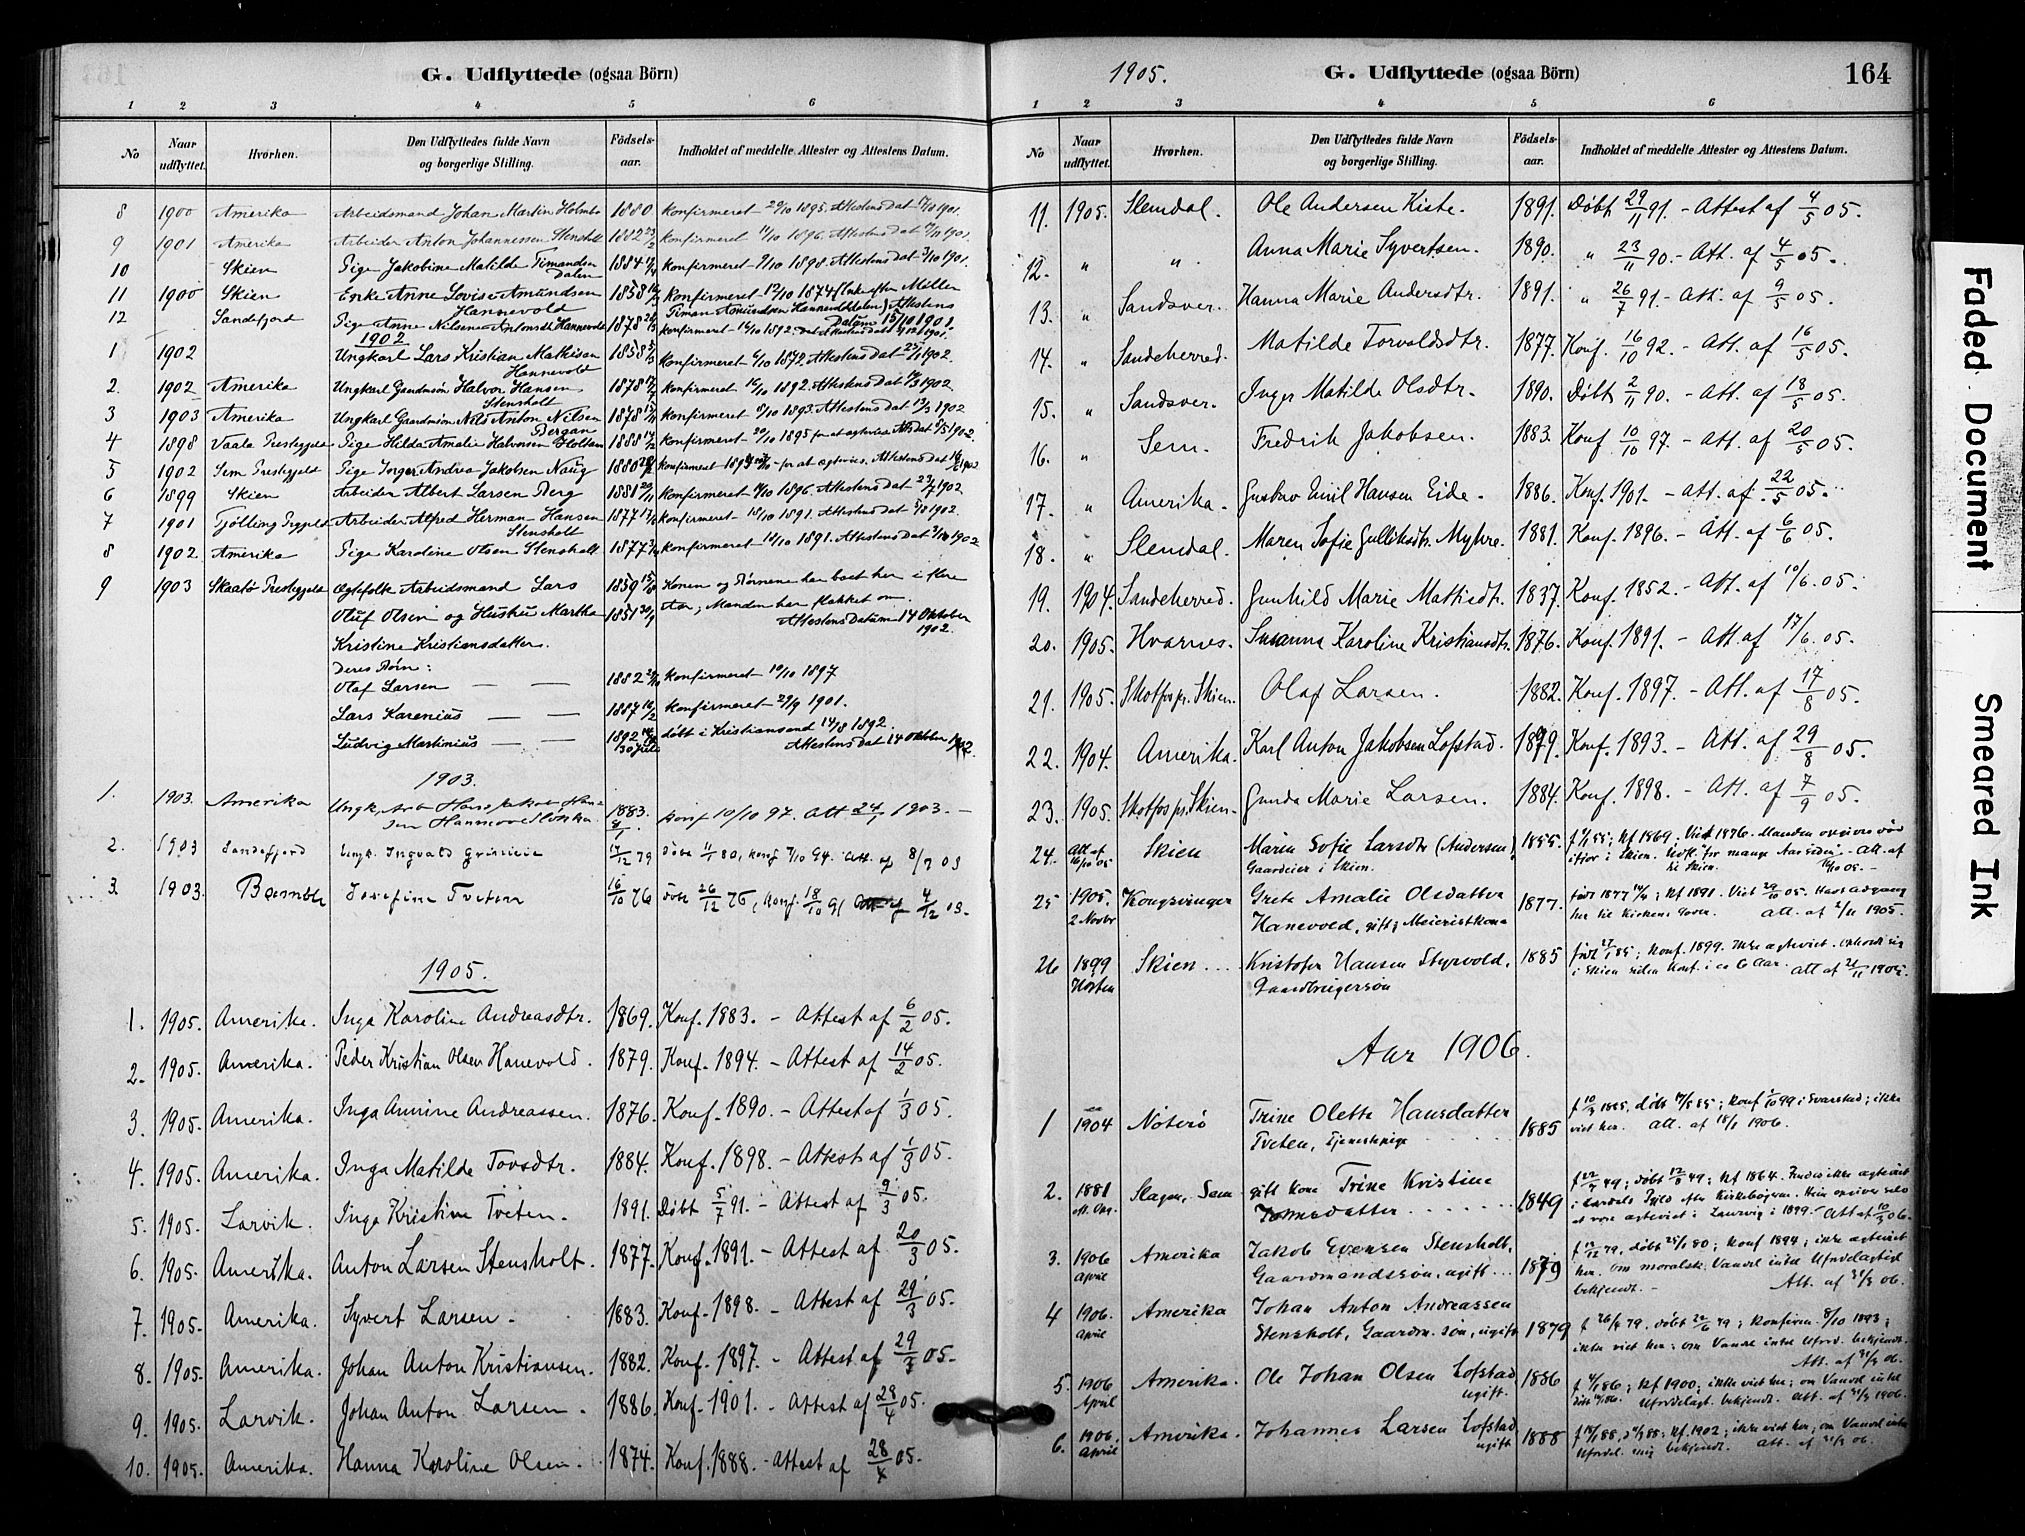 G. Udflyttede (ogsaa Börn)
1 2 3 4 5 6
No Naar udflyttet. Hvorhen. Den Udflyttedes fulde Navn og borgerlige Stilling. Födsels-aar. Indholdet af meddelte Attester og Attestens Datum.
8 1900 Amerika Arbeidsmand Johan Martin Holmbo 1880 Konfirmeret 29/10 1895. Attestens Dat 1901.
9 1901 Amerika Arbeider Anton Johannessen Stensholt 1882 Konfirmeret 11/10 1896. Attestens Dat 1901.
10 Skien Pige Jakobine Matilde Timandsen 1884 Konfirmeret 9/10 1898. Attestens Dat 3/10 1901.
Dalen
11 1900 Skien Enke Anne Lovise Amundsen 1858 Konfirmeret 12/10 1874 (Enke efter Møller
Hannevold Timan Amundsen Hannevold Attestens
Datum 15/10 1901.
12 Sandefjord Pige Anne Nilsine Antonsdt Hannevold 1878 Konfirmeret 16/10 1892. Attestens Dat 1901.
1902
1 1902 Ungkarl Lars Kristian Mathisen 1858 Konfirmeret 6/10 1872. Attestens Dat 1902.
Hannevold
2. 1902 Amerika Ungkarl Gaardmsøn Halvor Hansen 1878 Konfirmeret 16/10 1892. Attestens Dat 1902
Stensholt
3 1903 Amerika Ungkarl Gaardmsøn Nils Anton Nilsen 1878 Konfirmeret 8/10 1893. Attestens Dat 13/3 1902
Bergan
4 1898 Vaale Præstegjeld Pige Hilda Amalie Halvorsen Holtan 1888 Konfirmeret 20/10 1895 for at ægtevies 1902.
5 1902 Sem Præstegjeld Pige Inger Andrea Jakobsen Naug 1880 Konfirmeret 1895 - for at ægtevies. Attestens Dat 1902
6 1899 Skien Arbeider Albert Larsen Berg 1881 20/11 Konfirmeret 1896. Attestens Dat 1902
7 1901 Tjølling Prgjeld Arbeider Alfred Herman Hansen 1877 Konfirmeret 18/10 1891. Attestens Dat 1902.
Stensholt
8 1902 Amerika Pige Karoline Olsen Stensholt 1877 Konfirmeret 18/10 1891. Attestens Dat 1902
9 1903 Skaatø Præstegjeld Ægtefolk Arbeidsmand Lars 1850 Konen og Børnene har boet her i flere
Oluf Olsen og Hustru Martha 1851 Aar; Manden har flakket om.
Attestens Datum 14 Oktober
1902.
Kristine Kristiansdatter.
Deres Børn:
Olaf Larsen — — 1882 Konfirmeret 10/10 1897
Lars Karenius — — 1887 Konfirmeret 29/9 1901.
Ludvig Martinius — — 1892 døbt i Kristiansand 14/8 1892.
30 Juli Attestens Dat 14 Oktober 1902.
1903.
1. 1903. Amerika Ungk. Arb Hans Jakob Han- 1883. Konf 10/10 97. Att 24/ 1903. -
sen Hannevold
2. 1903 Sandefjord Ungk. Ingvald 17/12 79 Døbt 11/1 80, Konf 7/10 94. Att. af 8/9 03
3. 1903. Bamble Josefine Tveten 16/10 76 Døbt 26/12 76, Konf. 18/10 91 4/12 03.
1905.
1. 1905. Amerika. Inga Karoline Andreasdtr. 1869. Konf. 1883. - Attest af 6/2 05.
2. 1905. Amerika. Peder Kristian Olsen Hanevold. 1879. Konf. 1894. - Attest af 14/2 05.
3. 1905. Amerika. Inga Annine Andreassen. 1876. Konf. 1890. - Attest af 1/3 05.
4. 1905. Amerika. Inga Matilde Tovsdtr. 1884. Konf. 1898. - Attest af 1/3 05.
5. 1905. Larvik. Inga Kristine Tveten. 1891. Døbt 5/7 91. - Attest af 9/3 05.
6. 1905. Amerika. Anton Larsen Stensholt. 1877. Konf. 1891. - Attest af 20/3 05.
7. 1905. Amerika. Syvert Larsen. 1883. Konf. 1898. - Attest af 29/3 05.
8. 1905. Amerika. Johan Anton Kristiansen. 1882. Konf. 1897. - Attest af 29/3 05.
9. 1905. Larvik. Johan Anton Larsen. 1886. Konf. 1901. - Attest af 28/4 05.
10. 1905. Amerika. Hanna Karoline Olsen. 1874. Konf. 1888. - Attest af 28/4 05.
1905. G. Udflyttede (ogsaa Börn) 164
1 2 3 4 5 6
No Naar udflyttet. Hvorhen. Den Udflyttedes fulde Navn og borgerlige Stilling. Födsels-aar. Indholdet af meddelte Attester og Attestens Datum.
11. 1905. Slemdal. Ole Andersen Kiste. 1891. Døbt 29/11 91. - Attest af 4/5 05.
12. " " Anna Marie Syvertsen. 1890. " 23/11 90. - Att. af 4/5 05.
13. " Sandsver. Hanna Marie Andersdtr. 1891. " 26/7 91. - Att. af 9/5 05.
14. " Sandeherred. Matilde Torvaldsdtr. 1877. Konf. 16/10 92. - Att. af 16/5 05.
15. " Sandsver. Inger Matilde Olsdtr. 1890. Døbt 2/11 90. - Att. af 18/5 05.
16. " Sem. Fredrik Jakobsen. 1883. Konf 10/10 97. - Att. af 20/5 05.
17. " Amerika. Gustav Emil Hansen Eide. 1886. Konf. 1901. - Att. af 22/5 05.
18. " Slemdal. Maren Sofie Gulliksdtr. Myhre. 1881. Konf. 1896. - Att. af 6/6 05.
19. 1904. Sandeherred. Gunhild Marie Mathisdtr. 1837. Konf. 1852. - Att. af 10/6 05.
20. 1905. Hvarnes. Susanna Karoline Kristiansdtr. 1876. Konf. 1891. - Att. af 17/6 05.
21. 1905. Skotfos pr. Skien. Olaf Larsen. 1882. Konf. 1897. - Att. af 17/8 05.
22. 1904. Amerika. Karl Anton Jakobsen Lofstad. 1879. Konf. 1893. - Att. af 29/8 05.
23. 1905. Skotfos pr. Skien. Gunda Marie Larsen. 1884. Konf. 1898. - Att. af 7/9 05.
24. Att. af 16/10 05 Skien Maren Sofie Larsdtr (Andersen) 1855. Kf 1869. Viet 1876. Manden opgives død
Gaardeier i Skien. ifjor i Skien. Udfl. "for mange Aar siden" - Att. af
til Skien. 16/10 05. -
25 1905. Kongsvinger Grete Amalie Olsdatter 1877. født 1877; Kf 1891. Viet 29/10 05. Havt Adgang
2 Novbr Hanevold, gift, Meieristkone her til Kirkens Goder. Att. af 2/11 1905.
26 1899 Skien... Kristofer Hansen Styrvold, 1885 født 85; Konf. 1899. Ikke ægteviet. Opholdt sig
Høsten Gaardbrugersøn i Skien siden Konf. i ca 6 Aar. Att af 21/11 1905.
Aar 1906.
1 1904 Nøterø Trine Olette Hansdatter 1885 f 1885, døbt 85; Konf 99 i Svarstad; ikke
Tveten, Tjenestepige viet her. Att. af 18/1 1906.
2. 1881 Slagen, Sem gift Kone Trine Kristine 1849 f 49; døbt 49; Kf 1864. Findes ikke ægteviet
datter i Lardals Pgjld efter Kirkebøgerne. Hun opgiver selv
at være ægteviet i Laurvig i 1899. - Att af 06.
3. 1906 Amerika Jakob Evensen Stensholt, 1879 f 79, døbt 80; Konf 1894; ikke ægteviet
April Gaardmandssøn, ugift... her. Om moralsk Vandel intet Ufordelagtigt
bekjendt. - Att. af 31/3 06.
4 1906. Amerika Johan Anton Andreassen 1879 f 79, døbt 79; Konfirm. 8/10 1893;
April Stensholt, Gaardm. søn, ugift ikke viet her; om Vandel intet Uford. bekjendt.
Att. af 31/3 06.
5. 1906 Amerika. Ole Johan Olsen Lofstad 1886 f 86; Kf 1900; ikke viet her; om Vandel intet
April ugift. Ufordelagt. bekjendt. Att. af 31/3 1906.
6. 1906. Amerika. Johannes Larsen Lofstad 1888 f 88, 88; Kf. 1902; ikke viet her; om Vandel intet
April ugift Ufordel. mig bekjendt. Att. af 31/3 06.
Faded Document
Smeared Ink